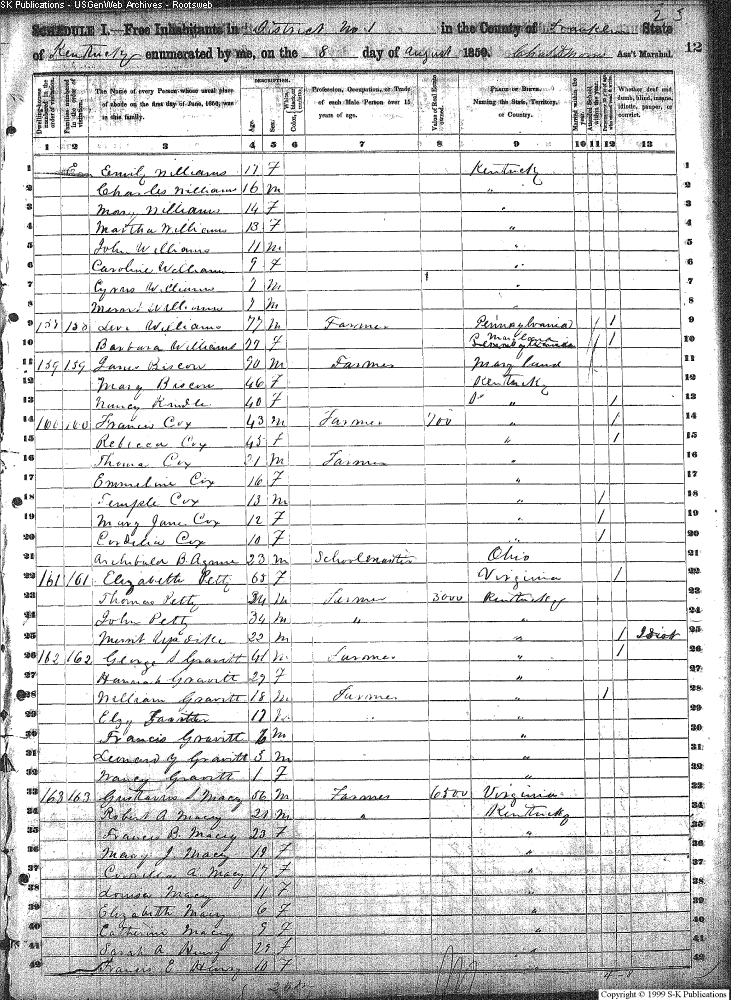 SK Publications - USGenWeb Archives - Rootsweb
25
SCHEDULE I.—Free Inhabitants in District No. 1 in the County of State
of Kentucky enumerated by me, on the 8 day of August 1850. Ass't Marshal. 12
Dwelling-houses numbered in the order of visitation.
Families numbered in the order of visitation.
The Name of every Person whose usual place of abode on the first day of June, 1850, was in this family.
DESCRIPTION.
Age.
Sex.
Color,
Profession, Occupation, or Trade of each Male Person over 15 years of age.
Value of Real Estate owned.
PLACE OF BIRTH.
Naming the State, Territory, or Country.
Married within the year.
Attended School within the year.
Whether deaf and dumb, blind, insane, idiotic, pauper, or convict.
1 2 3 4 5 6 7 8 9 10 11 12 13
1 Emily Williams 17 F Kentucky 1
2 Charles Williams 16 m " 2
3 Mary Williams 14 F " 3
4 Martha Williams 13 F " 4
5 John Williams 11 m " 5
6 Caroline Williams 9 F " 6
7 Cyrus Williams 7 m 7
8 Williams 7 m 8
9 158 158 Levi Williams 77 m Farmer Pennsylvania / 9
10 Barbara Williams 77 F Maryland / 10
11 159 159 James Biscoe 90 m Farmer Maryland 11
12 Mary Biscoe 46 F Kentucky 12
13 Nancy 40 F " / 13
14 160 160 Francis Cox 43 m Farmer 700 " / 14
15 Rebecca Cox 45 f " / 15
16 Thomas Cox 21 m Farmer " 16
17 Emmeline Cox 16 F " 17
18 Temple Cox 13 m " / 18
19 Mary Jane Cox 12 F " / 19
20 Cordelia Cox 10 F " / 20
21 Archibald B. 23 m Schoolmaster Ohio 21
22 161 161 Elizabeth Petty 65 F Virginia / 22
23 Thomas Petty 34 m Farmer 3000 Kentucky 23
24 John Petty 34 m " " 24
25 22 m " / Idiot 25
26 162 162 George S Gravitt 41 m Farmer " / 26
27 Hannah Gravitt 27 F " 27
28 William Gravitt 18 m Farmer " / 28
29 Elzy 17 m " " 29
30 Francis Gravitt 6 m " 30
31 Leonard G Gravitt 3 m " 31
32 Nancy Gravitt 1 F " 32
33 163 163 Gustavus S Macey 56 m Farmer 6500 Virginia 33
34 Robert A Macey 21 m " Kentucky 34
35 Francis B. Macey 23 F " 35
36 Mary J Macey 19 F " 36
37 A. Macy 17 F " 37
38 Louisa Macey 11 F " 38
39 Elizabeth Macy 6 F " 39
40 Catherine Macey 9 F " 40
41 Sarah A Henry 29 f " 41
42 Francis E Henry 10 F " 42
Copyright © 1999 S-K Publications